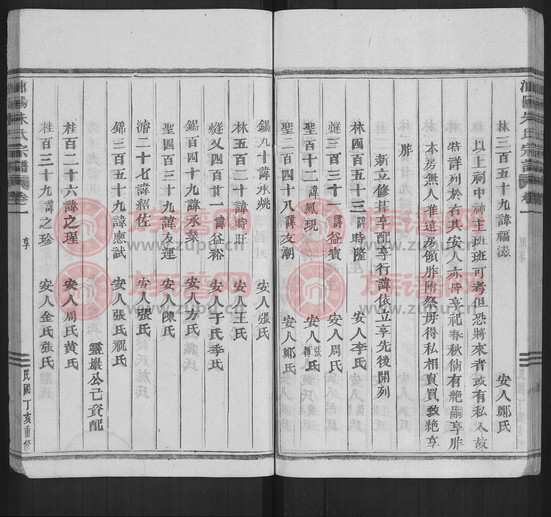 浦陽朱氏宗譜 卷一
林三百五十九諱福滋 安人鄭氏
以上祠中神主班班可考但恐將來者或有私人故
特詳列於右其安人亦皆享祀春秋倘有絕嗣享胙
本房無人准遠房領胙附祭毋得私相賣買致絕享
胙
新立修基享配享行諱依立享先後開列
林四百五十三諱時隆 安人李氏
燧三百三十一諱益賓 安人周氏
聖百十二諱鳳現 安人張氏
聖二百四十八諱友潮 安人鄭氏
錫九十諱承姚 安人張氏
林五百二十諱時壯 安人王氏
燧又四百廿一諱益裕 安人于氏季氏
錫百四十九諱承業 安人方氏
聖四百三十九諱連 安人陳氏
濬二十七諱紹佐 安人張氏
錦三百五十九諱應試 安人張氏祝氏
靈巖公亡資配
桂百二十六諱之瑆 安人周氏黃氏
桂百三十九諱之珍 安人金氏張氏
浦陽朱氏宗譜 卷一
民國丁亥重修